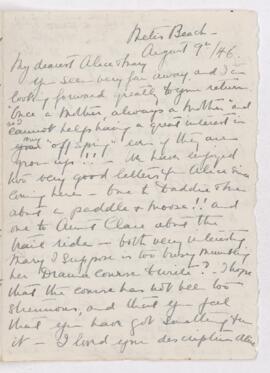 Metis Beach -
August 9th /46
My dearest Alice & Mary
You seem very far away and I'm
looking forward greatly to your return
"Once a Mother, always a Mother" and
cannot help having a great interest in
your "off spring" even if they are
grown up!!! We have enjoyed
two very good letters from Alice since
coming here - One to Daddie & me
about a paddle & moose!! and
one to Aunt Clare about the
trail ride - both very interesting
Mary I suppose is too busy
her Drama Course to write? I hope
that the course has not been too
strenuous, and that you feel
that you have got something from
it - I loved your description Alice